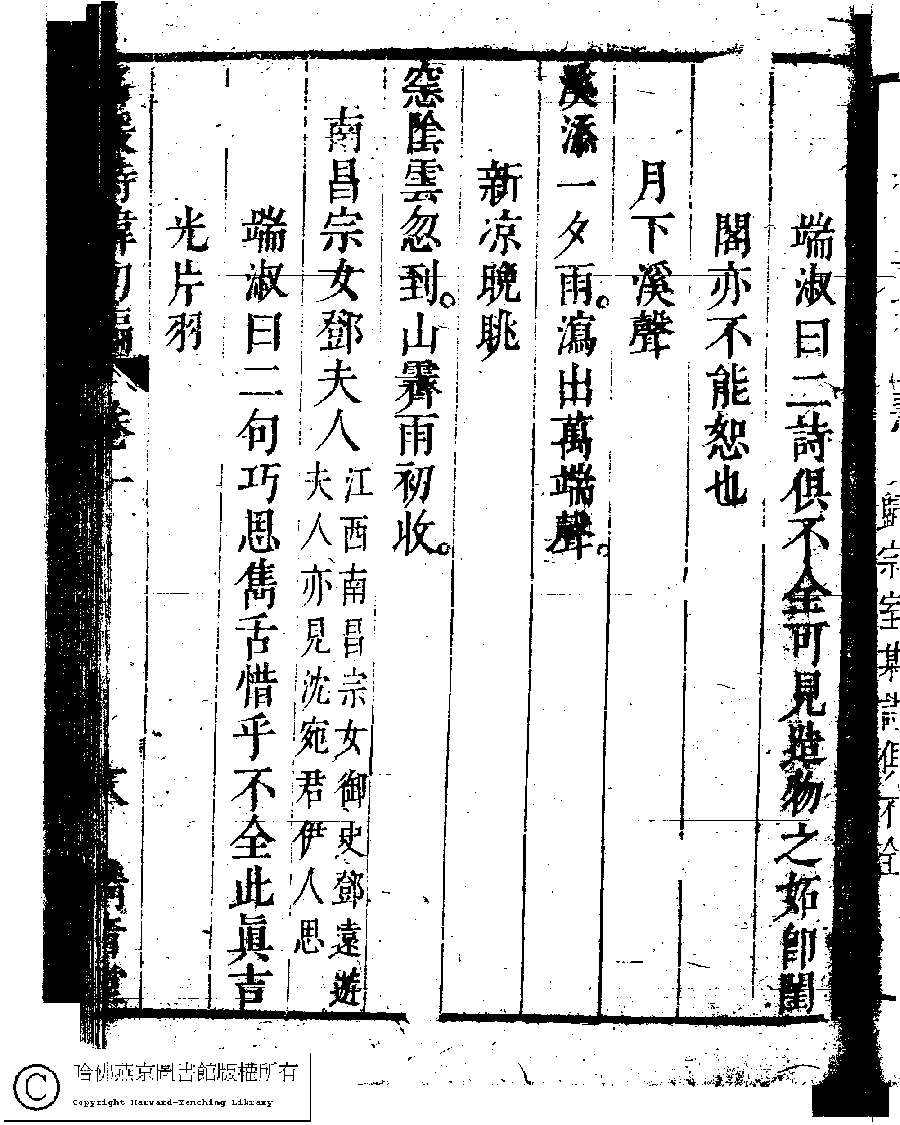 端淑曰二詩俱不全可見造物之妬卽閨
閣亦不能恕也
月下溪聲
溪添一夕雨。瀉出萬端聲。
新凉晚眺
窓陰雲忽到。山霽雨初收。
南昌宗女鄧夫人
江西南昌宗女御史鄧遠遊
夫人亦見沈宛君伊人思
端淑曰二句巧思雋舌惜乎不全此眞吉
光片羽
詩緯初編
卷十
清音堂
哈佛燕京圖書館版權所有
Copyright Harvard-Yenching Library